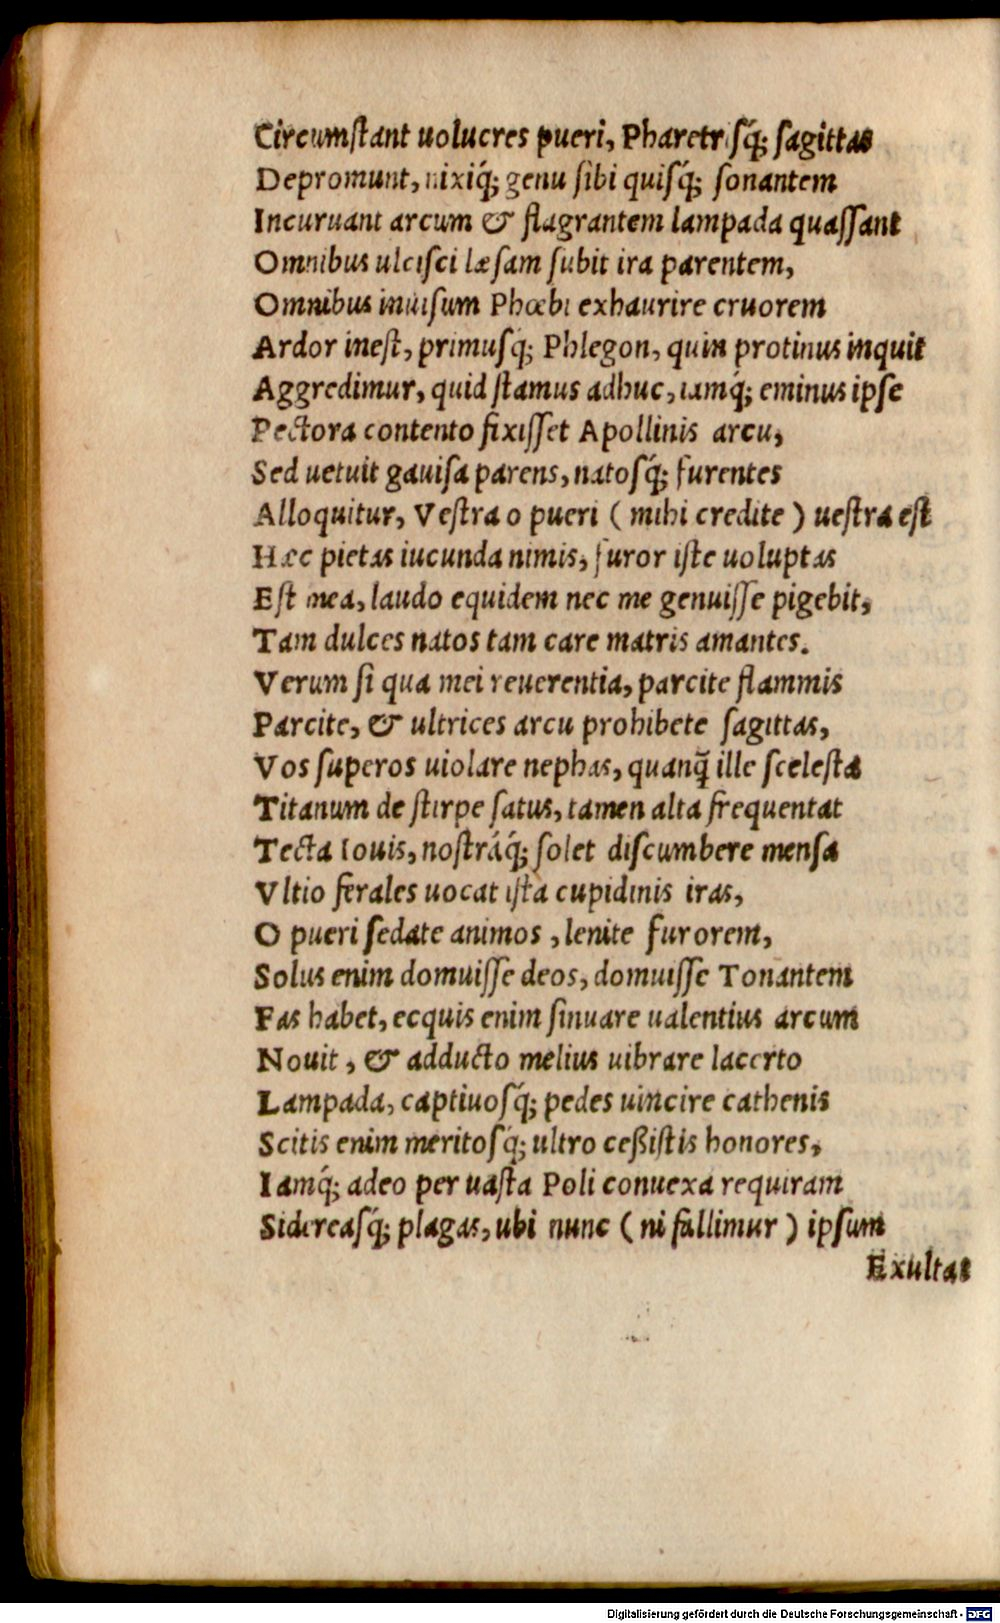 Circumſtant uolucres pueri, Pharetriſq́; ſagittas
Depromunt, nixiq́; genu ſibi quiſq́; ſonantem
Incuruant arcum & flagrantem lampada quaſſant
Omnibus ulciſci læſam ſubit ira parentem,
Omnibus inuiſum Phœbi exhaurire cruorem
Ardor ineſt, primuſq́; Phlegon, quin protinus inquit
Aggredimur, quid ſtamus adhuc, iamq́; eminus ipſe
Pectora contento fixiſſet Apollinis arcu,
Sed uetuit gauiſa parens, natoſq́; furentes
Alloquitur, Veſtra o pueri ( mihi credite ) ueſtra eſt
Hæc pietas iucunda nimis, furor iſte uoluptas
Eſt mea, laudo equidem nec me genuiſſe pigebit,
Tam dulces natos tam care matris amantes.
Verum ſi qua mei reuerentia, parcite flammis
Parcite, & ultrices arcu prohibete ſagittas,
Vos ſuperos uiolare nephas, quanq̃ ille ſceleſta
Titanum de ſtirpe ſatus, tamen alta frequentat
Tecta Iouis, noſtráq́; ſolet diſcumbere menſa
Vltio ferales uocat iſta cupidinis iras,
O pueri ſedate animos , lenite furorem,
Solus enim domuiſſe deos, domuiſſe Tonantem
Fas habet, ecquis enim ſinuare ualentius arcum
Nouit , & adducto melius uibrare lacerto
Lampada, captiuoſq́; pedes uincire cathenis
Scitis enim meritoſq́; ultro ceßiſtis honores,
Iamq́; adeo per uaſta Poli conuexa requiram
Sidereaſq́; plagas, ubi nunc ( ni fallimur ) ipſum
Exultat
Digitalisierung gefördert durch die Deutsche Forschungsgemeinschaft - DFG